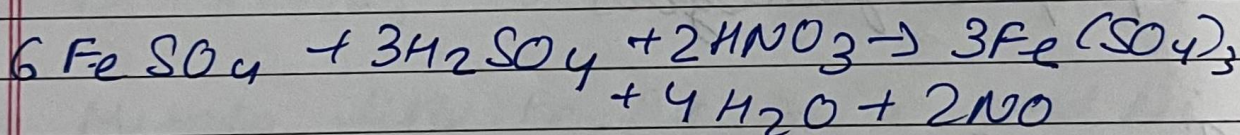 6 FeSO4 + 3H2SO4 + 2HNO3 → 3Fe(SO4)3
+ 4H2O + 2NO